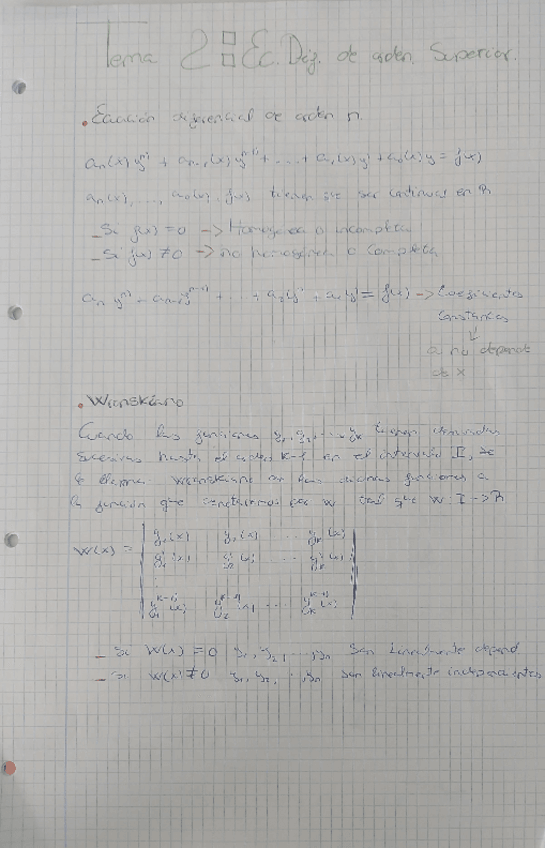 Tema 2: Ec. Dif. de orden Superior.
• Ecuación diferencial de orden n.
an(x) y^(n) + an-1(x) y^(n-1) + ... + a1(x) y' + a0(x) y = f(x)
an(x), ..., a0(x), f(x) tienen que ser continuas en R
- Si f(x) = 0 -> Homogénea o incompleta
- Si f(x) ≠ 0 -> no homogénea o completa
an y^(n) + an-1 y^(n-1) + ... + a2 y'' + a1 y' = f(x) -> Coeficientes
constantes
↓
a no depende
de x
• Wronskiano
Cuando las funciones y1, y2, ..., yk tienen derivadas
sucesivas hasta el orden k-1 en el intervalo I, se
le llama wronskiano de las dichas funciones a
la función que construimos por W tal que W: I -> R
W(x) = | y1(x) y2(x) ... yk(x) |
| y1'(x) y2'(x) ... yk'(x) |
⋮
| y1^(k-1)(x) y2^(k-1)(x) ... yk^(k-1)(x) |
- Si W(x) = 0 y1, y2, ..., yn son linealmente depend
- Si W(x) ≠ 0 y1, y2, ..., yn son linealmente independientes